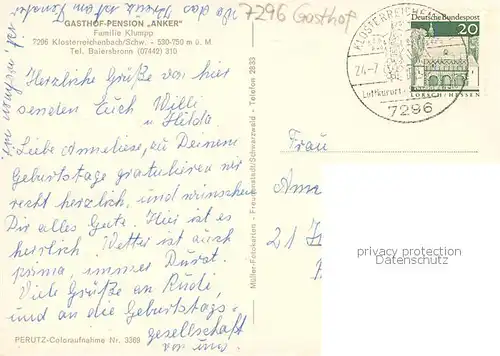 GASTHOF-PENSION „ANKER"
Familie Klumpp
7296 Klosterreichenbach/Schw. - 530-750 m ü. M
Tel. Baiersbronn (07442) 310
7296 Gasthof
KLOSTERREICHENBACH
24.-7.
Luftkurort
7296
Deutsche Bundespost
20
LORSCH/HESSEN
Herzliche Grüße von hier
senden Euch Willi
u Hilda
Liebe Anneliese, zu Deinem
Geburtstage gratulieren wir
recht herzlich, und wünschen
Dir alles Gute. Hier ist es
herrlich. Wetter ist auch
prima, immer Durst.
Viele Grüße an Rudi,
und an die Geburtstags-
gesellschaft
von uns.
Frau
21
PERUTZ-Coloraufnahme Nr. 3369
Müller-Fotokarten - Freudenstadt/Schwarzwald - Telefon 2833
privacy protection
DOMMAs.com